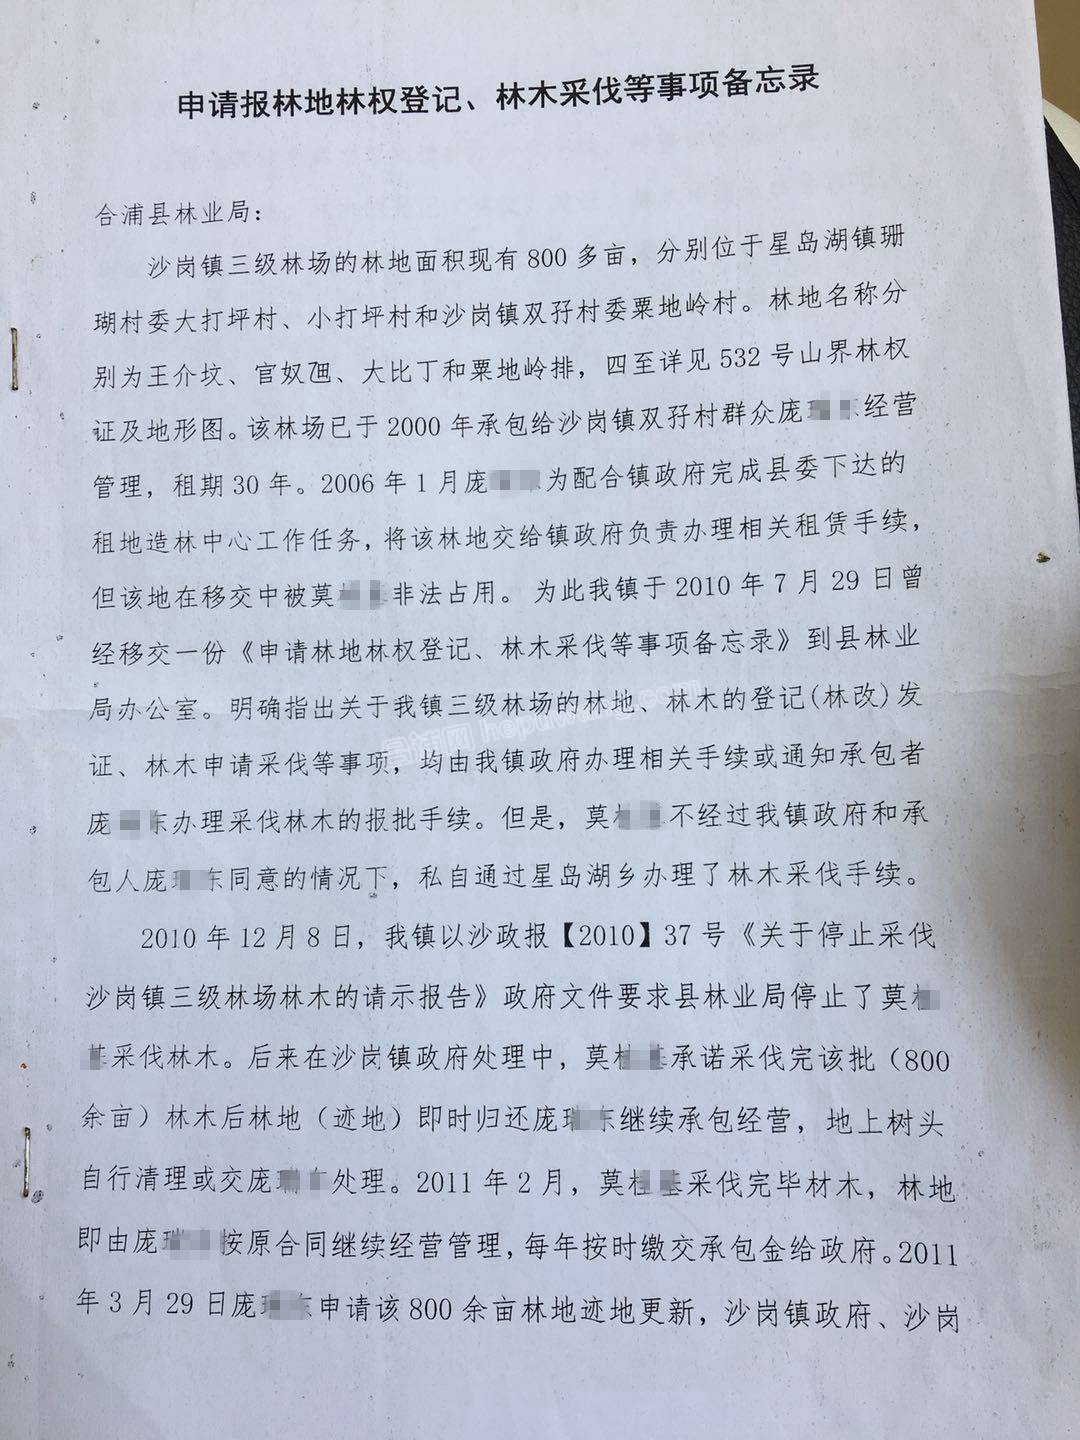 申请报林地林权登记、林木采伐等事项备忘录
合浦县林业局：
沙岗镇三级林场的林地面积现有 800 多亩，分别位于星岛湖镇珊
瑚村委大打坪村、小打坪村和沙岗镇双孖村委粟地岭村。林地名称分
别为王介坟、官奴、大比丁和粟地岭排，四至详见 532 号山界林权
证及地形图。该林场已于 2000 年承包给沙岗镇双孖村群众庞 经营
管理，租期 30 年。2006 年 1 月庞 为配合镇政府完成县委下达的
租地造林中心工作任务，将该林地交给镇政府负责办理相关租赁手续，
但该地在移交中被莫 非法占用。为此我镇于 2010 年 7 月 29 日曾
经移交一份《申请林地林权登记、林木采伐等事项备忘录》到县林业
局办公室。明确指出关于我镇三级林场的林地、林木的登记(林改)发
证、林木申请采伐等事项，均由我镇政府办理相关手续或通知承包者
庞 东办理采伐林木的报批手续。但是，莫 不经过我镇政府和承
包人庞 东同意的情况下，私自通过星岛湖乡办理了林木采伐手续。
2010 年 12 月 8 日，我镇以沙政报【2010】37 号《关于停止采伐
沙岗镇三级林场林木的请示报告》政府文件要求县林业局停止了莫
基采伐林木。后来在沙岗镇政府处理中，莫 基承诺采伐完该批（800
余亩）林木后林地（迹地）即时归还庞 东继续承包经营，地上树头
自行清理或交庞 处理。2011 年 2 月，莫 基采伐完毕材木，林地
即由庞 按原合同继续经营管理，每年按时缴交承包金给政府。2011
年 3 月 29 日庞 东申请该 800 余亩林地迹地更新，沙岗镇政府、沙岗
hepuwang.com